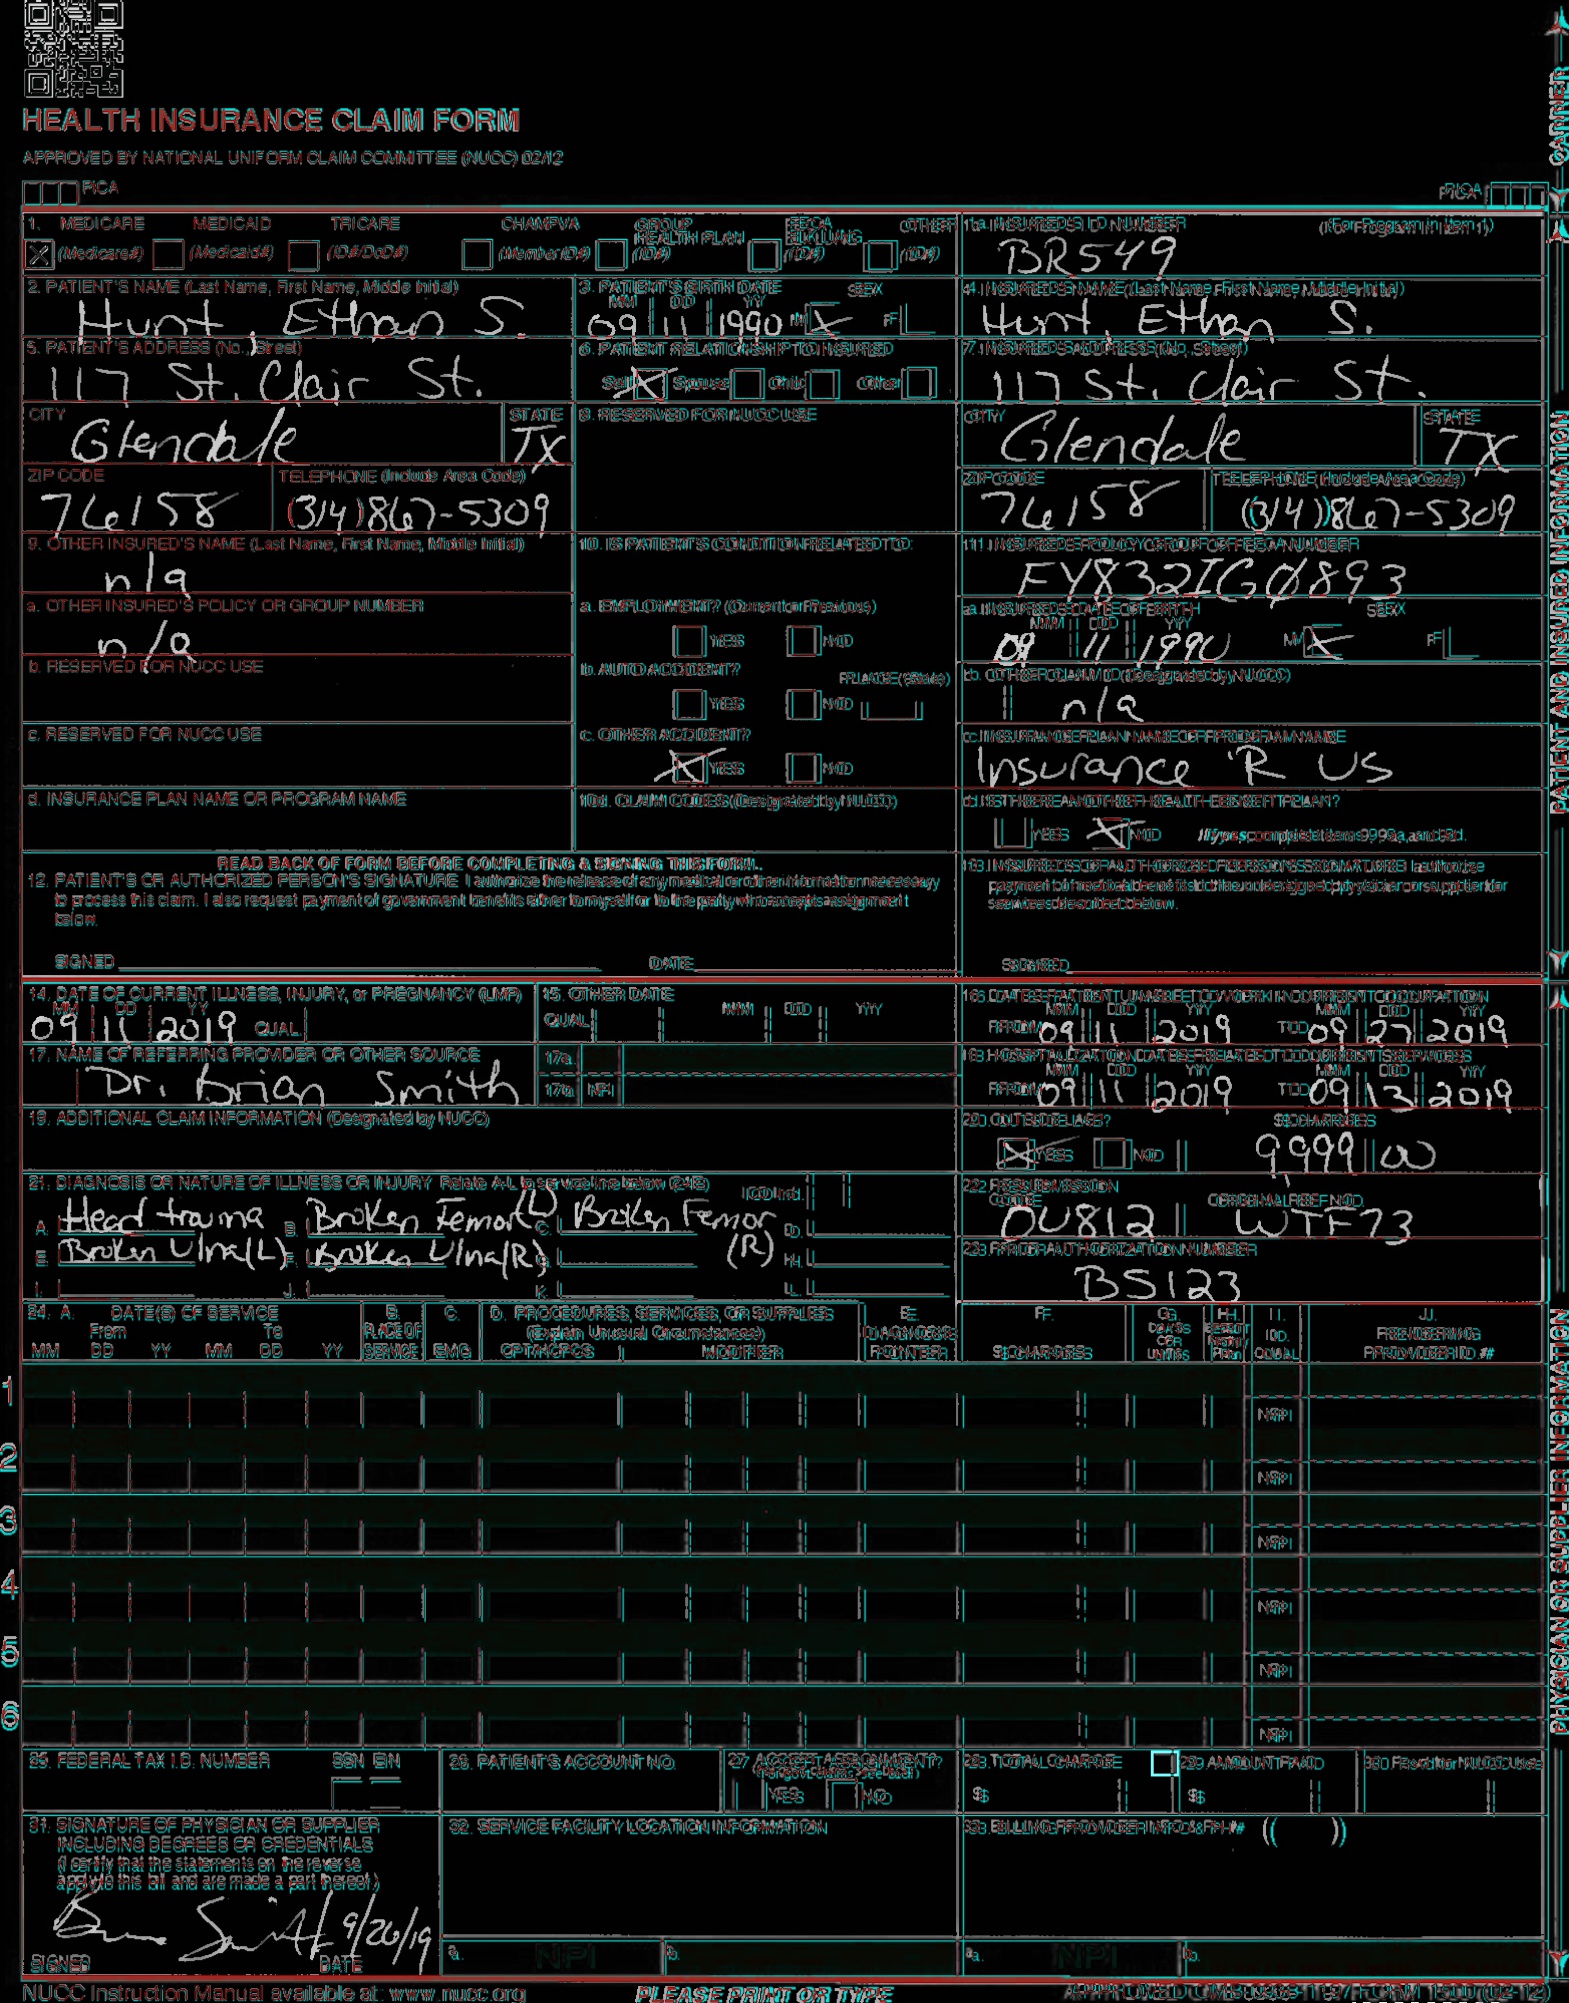 HEALTH INSURANCE CLAIM FORM
APPROVED BY NATIONAL UNIFORM CLAIM COMMITTEE (NUCC) 02/12
PICA
PICA
CARRIER
1. MEDICARE MEDICAID TRICARE CHAMPVA GROUP HEALTH PLAN FECA BLK LUNG OTHER
(Medicare#) (Medicaid#) (ID#/DoD#) (Member ID#) (ID#) (ID#) (ID#)
1a. INSURED'S I.D. NUMBER (For Program in Item 1)
BR549
2. PATIENT'S NAME (Last Name, First Name, Middle Initial)
Hunt, Ethan S.
3. PATIENT'S BIRTH DATE SEX
MM DD YY
09 11 1990 M X F
4. INSURED'S NAME (Last Name, First Name, Middle Initial)
Hunt, Ethan S.
5. PATIENT'S ADDRESS (No., Street)
117 St. Clair St.
6. PATIENT RELATIONSHIP TO INSURED
Self X Spouse Child Other
7. INSURED'S ADDRESS (No., Street)
117 St. Clair St.
CITY STATE
Glendale TX
8. RESERVED FOR NUCC USE
CITY STATE
Glendale TX
ZIP CODE TELEPHONE (Include Area Code)
76158 (314)867-5309
ZIP CODE TELEPHONE (Include Area Code)
76158 (314)867-5309
9. OTHER INSURED'S NAME (Last Name, First Name, Middle Initial)
n/a
10. IS PATIENT'S CONDITION RELATED TO:
11. INSURED'S POLICY GROUP OR FECA NUMBER
FY832IG0893
a. OTHER INSURED'S POLICY OR GROUP NUMBER
n/a
a. EMPLOYMENT? (Current or Previous)
YES NO
a. INSURED'S DATE OF BIRTH SEX
MM DD YY
09 11 1990 M X F
b. RESERVED FOR NUCC USE
b. AUTO ACCIDENT? PLACE (State)
YES NO
b. OTHER CLAIM ID (Designated by NUCC)
n/a
c. RESERVED FOR NUCC USE
c. OTHER ACCIDENT?
X YES NO
c. INSURANCE PLAN NAME OR PROGRAM NAME
Insurance 'R US
d. INSURANCE PLAN NAME OR PROGRAM NAME
10d. CLAIM CODES (Designated by NUCC)
d. IS THERE ANOTHER HEALTH BENEFIT PLAN?
YES X NO If yes, complete items 9, 9a, and 9d.
PATIENT AND INSURED INFORMATION
READ BACK OF FORM BEFORE COMPLETING & SIGNING THIS FORM.
12. PATIENT'S OR AUTHORIZED PERSON'S SIGNATURE I authorize the release of any medical or other information necessary
to process this claim. I also request payment of government benefits either to myself or to the party who accepts assignment
below.
SIGNED DATE
13. INSURED'S OR AUTHORIZED PERSON'S SIGNATURE I authorize
payment of medical benefits to the undersigned physician or supplier for
services described below.
SIGNED
14. DATE OF CURRENT ILLNESS, INJURY, or PREGNANCY (LMP)
MM DD YY
09 11 2019 QUAL.
15. OTHER DATE
QUAL. MM DD YY
16. DATES PATIENT UNABLE TO WORK IN CURRENT OCCUPATION
MM DD YY MM DD YY
FROM 09 11 2019 TO 09 27 2019
17. NAME OF REFERRING PROVIDER OR OTHER SOURCE
Dr. Brian Smith
17a.
17b. NPI
18. HOSPITALIZATION DATES RELATED TO CURRENT SERVICES
MM DD YY MM DD YY
FROM 09 11 2019 TO 09 13 2019
19. ADDITIONAL CLAIM INFORMATION (Designated by NUCC)
20. OUTSIDE LAB? $ CHARGES
X YES NO 9999 00
21. DIAGNOSIS OR NATURE OF ILLNESS OR INJURY Relate A-L to service line below (24E) ICD Ind.
A. Head trauma B. Broken Femor(L) C. Broken Femor (R) D.
E. Broken Ulna(L) F. Broken Ulna(R) G. H.
I. J. K. L.
22. RESUBMISSION CODE ORIGINAL REF. NO.
OU812 WTF73
23. PRIOR AUTHORIZATION NUMBER
BS123
24. A. DATE(S) OF SERVICE B. C. D. PROCEDURES, SERVICES, OR SUPPLIES E. F. G. H. I. J.
From To PLACE OF (Explain Unusual Circumstances) DIAGNOSIS DAYS OR EPSDT Family ID. RENDERING
MM DD YY MM DD YY SERVICE EMG CPT/HCPCS MODIFIER POINTER $ CHARGES UNITS Plan QUAL. PROVIDER ID. #
1 NPI
2 NPI
3 NPI
4 NPI
5 NPI
6 NPI
PHYSICIAN OR SUPPLIER INFORMATION
25. FEDERAL TAX I.D. NUMBER SSN EIN
26. PATIENT'S ACCOUNT NO.
27. ACCEPT ASSIGNMENT?
(For govt. claims, see back)
YES NO
28. TOTAL CHARGE
$
29. AMOUNT PAID
$
30. Rsvd for NUCC Use
31. SIGNATURE OF PHYSICIAN OR SUPPLIER
INCLUDING DEGREES OR CREDENTIALS
(I certify that the statements on the reverse
apply to this bill and are made a part thereof.)
Brian Smith 9/26/19
SIGNED DATE
32. SERVICE FACILITY LOCATION INFORMATION
a. NPI b.
33. BILLING PROVIDER INFO & PH # ( )
a. NPI b.
NUCC Instruction Manual available at: www.nucc.org
PLEASE PRINT OR TYPE
APPROVED OMB-0938-1197 FORM 1500 (02-12)